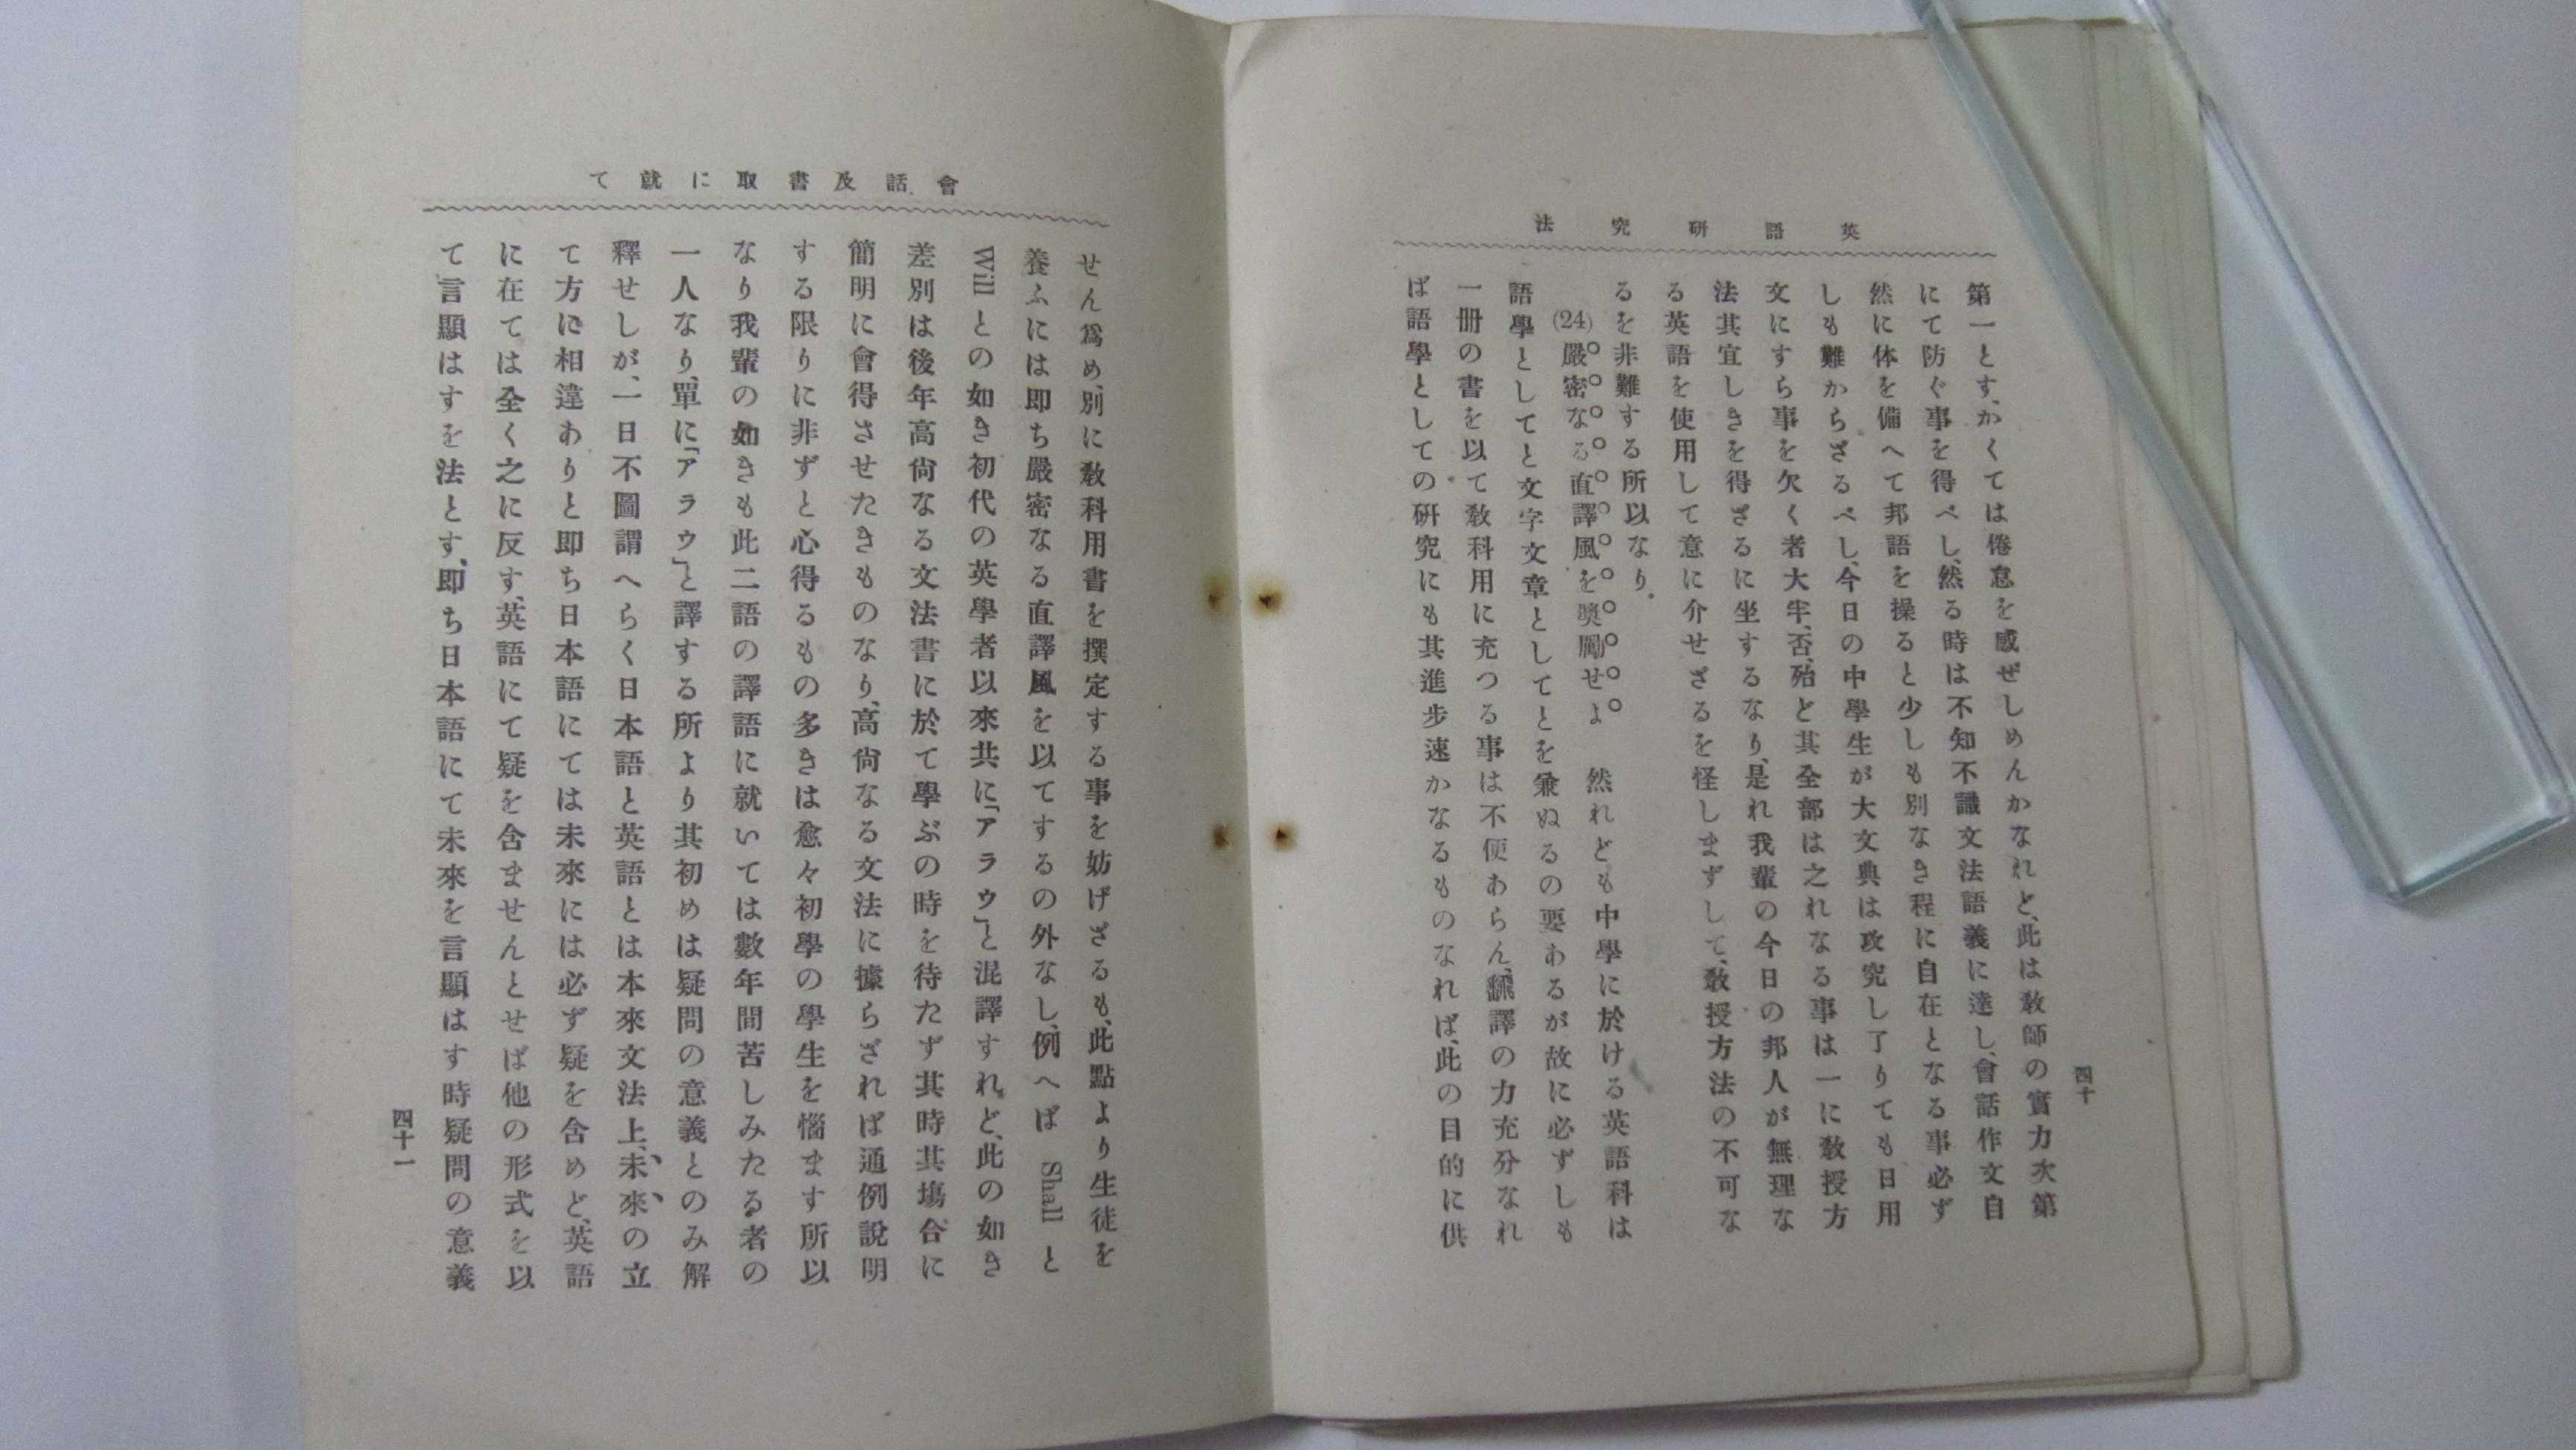 英語研究法
四十
第一とす、かくては倦怠を感ぜしめんかなれど、此は敎師の實力次第
にて防ぐ事を得べし、然る時は不知不識文法語義に達し、會話作文自
然に体を備へて邦語を操ると少しも別なき程に自在となる事必ず
しも難からざるべし、今日の中學生が大文典は攻究し了りても日用
文にすら事を欠く者大牢、否、殆ど其全部は之れなる事は一に敎授方
法其宜しきを得ざるに坐するなり、是れ我輩の今日の邦人が無理な
る英語を使用して意に介せざるを怪しまずして、敎授方法の不可な
るを非難する所以なり.
(24) 嚴密なる直譯風を奬勵せよ 然れども中學に於ける英語科は
語學としてと文字文章としてとを兼ぬるの要あるが故に必ずしも
一册の書を以て敎科用に充つる事は不便あらん、飜譯の力充分なれ
ば語學としての研究にも其進步速かなるものなれば、此の目的に供
會話及書取に就て
せん爲め、別に敎科用書を撰定する事を妨げざるも、此點より生徒を
養ふには即ち嚴密なる直譯風を以てするの外なし、例へば Shall と
Will との如き初代の英學者以來共に「アラウ」と混譯すれど、此の如き
差別は後年高尙なる文法書に於て學ぶの時を待たず其時其塲合に
簡明に會得させたきものなり、高尙なる文法に據らざれば通例說明
する限りに非ずと心得るもの多きは愈々初學の學生を惱ます所以
なり我輩の如きも此二語の譯語に就いては數年間苦しみたる者の
一人なり、單に「アラウ」と譯する所より其初めは疑問の意義とのみ解
釋せしが、一日不圖謂へらく日本語と英語とは本來文法上、未來の立
て方に相違ありと即ち日本語にては未來には必ず疑を含めど、英語
に在ては全く之に反す、英語にて疑を含ませんとせば他の形式を以
て言顯はすを法とす、即ち日本語にて未來を言顯はす時疑問の意義
四十一